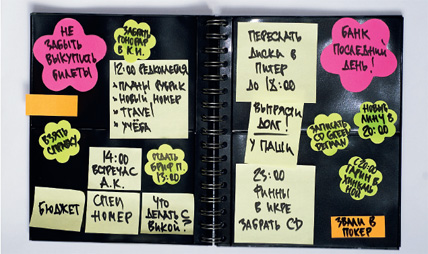 НЕ
ЗАБЫТЬ
ВЫКУПИТЬ
БИЛЕТЫ
ЗАБРАТЬ
ГОНОРАР
В К.И.
12:00 РЕДКОЛЛЕГИЯ
ПЛАНЫ РУБРИК
НОВЫЙ НОМЕР
TRAVEL
УЧЁБА
ВЗЯТЬ
СПРАВКУ
14:00
ВСТРЕЧА С
А.К.
ОТДАТЬ
БРИФ П.
13:00
БЮДЖЕТ
СПЕЦ
НОМЕР
ЧТО
ДЕЛАТЬ С
ВИКОЙ?
ПЕРЕСЛАТЬ
ДИСКА В
ПИТЕР
ДО 18:00
ВЫТРЯСТИ
ДОЛГ!
У ПАШИ
23:00
ФИННЫ
В ИКРЕ
ЗАБРАТЬ CD
БАНК
ПОСЛЕДНИЙ
ДЕНЬ!
20:00
ЗАПИСАТЬ
CD GREEN
20:00
ЗВАЛИ В
ПОКЕР